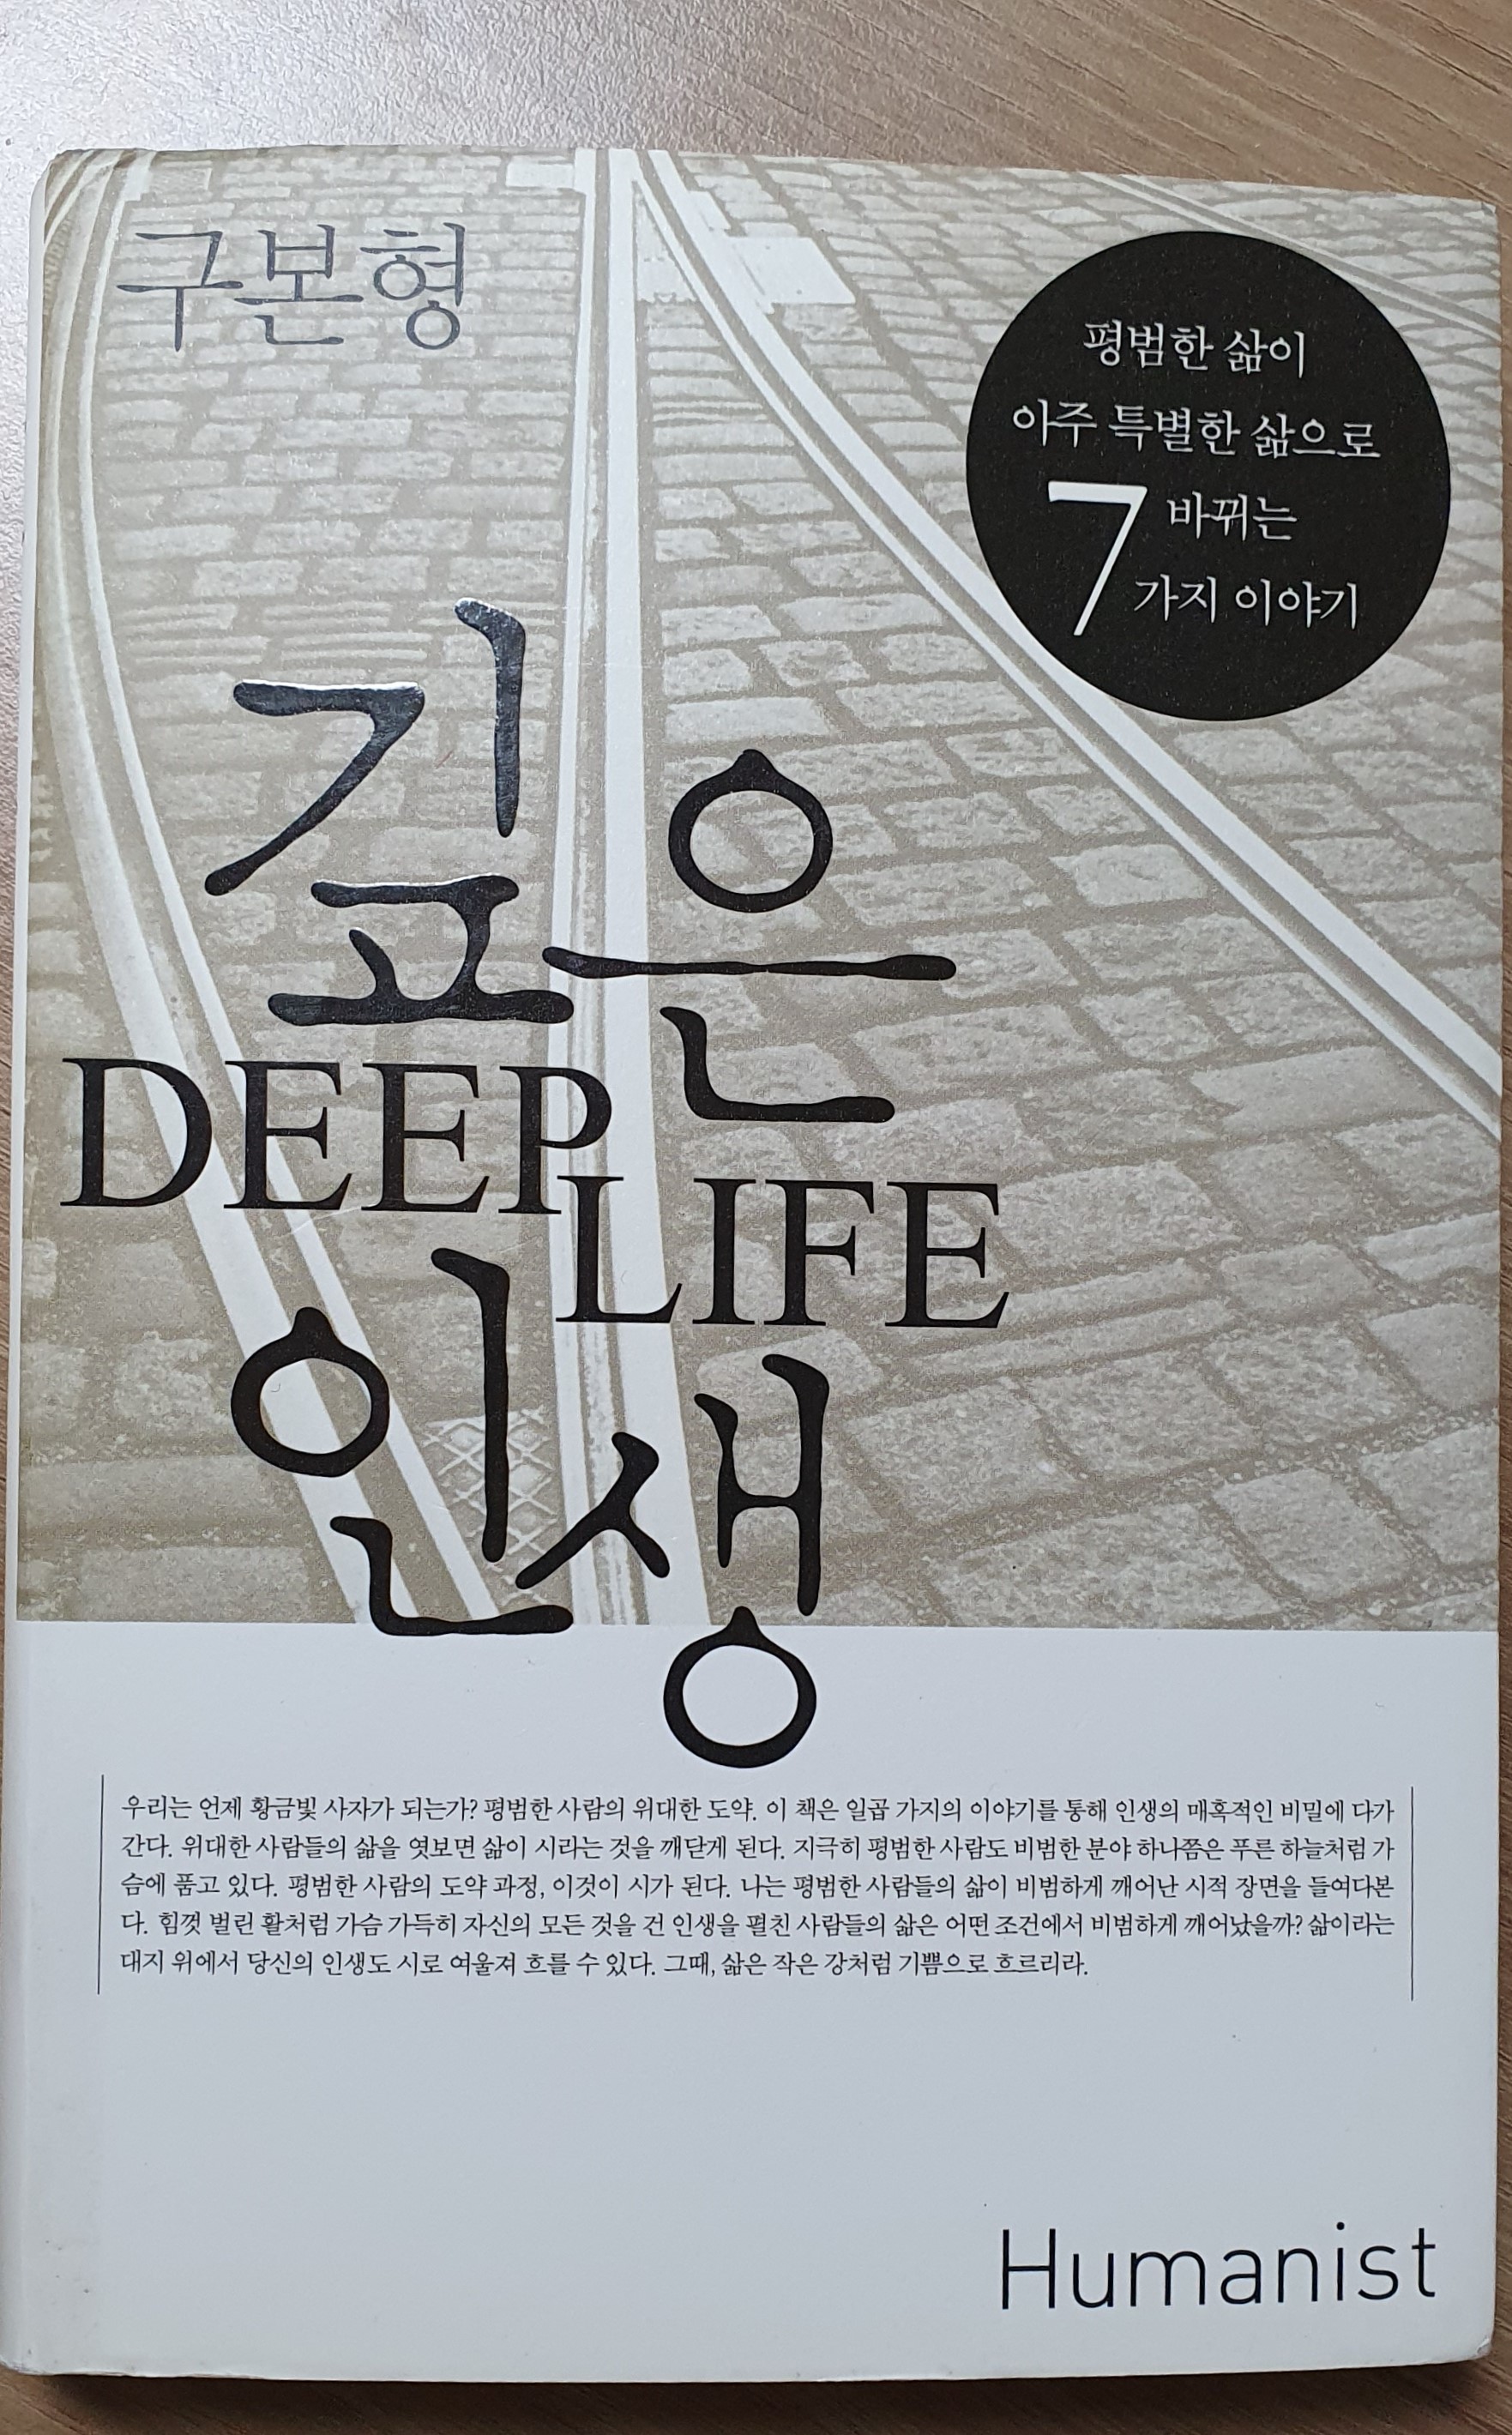 구본형
평범한 삶이
아주 특별한 삶으로
7 바뀌는
가지 이야기
깊은
DEEP
LIFE
인생
우리는 언제 황금빛 사자가 되는가? 평범한 사람의 위대한 도약. 이 책은 일곱 가지의 이야기를 통해 인생의 매혹적인 비밀에 다가
간다. 위대한 사람들의 삶을 엿보면 삶이 시라는 것을 깨닫게 된다. 지극히 평범한 사람도 비범한 분야 하나쯤은 푸른 하늘처럼 가
슴에 품고 있다. 평범한 사람의 도약 과정, 이것이 시가 된다. 나는 평범한 사람들의 삶이 비범하게 깨어난 시적 장면을 들여다본
다. 힘껏 벌린 활처럼 가슴 가득히 자신의 모든 것을 건 인생을 펼친 사람들의 삶은 어떤 조건에서 비범하게 깨어났을까? 삶이라는
대지 위에서 당신의 인생도 시로 여울져 흐를 수 있다. 그때, 삶은 작은 강처럼 기쁨으로 흐르리라.
Humanist